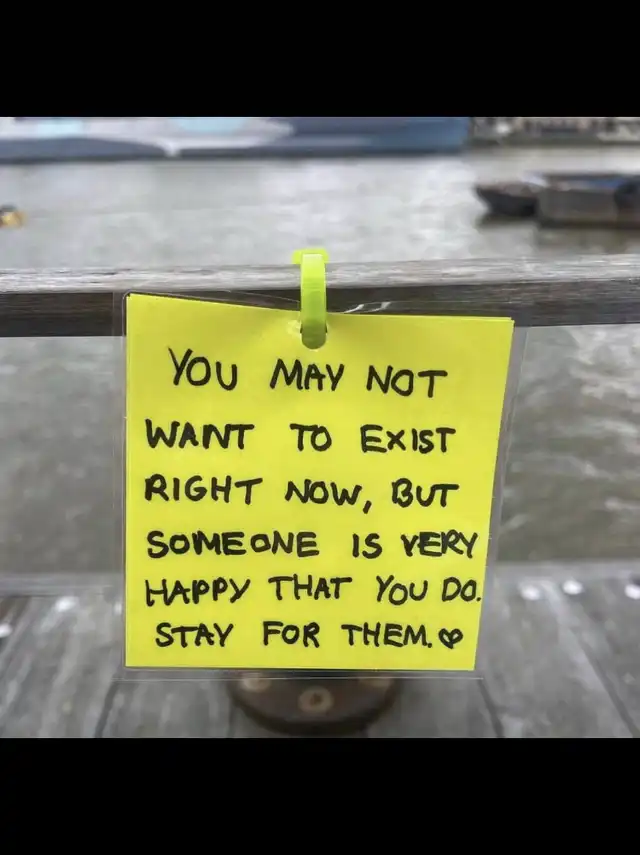 YOU MAY NOT
WANT TO EXIST
RIGHT NOW, BUT
SOMEONE IS VERY
HAPPY THAT YOU DO.
STAY FOR THEM.♡